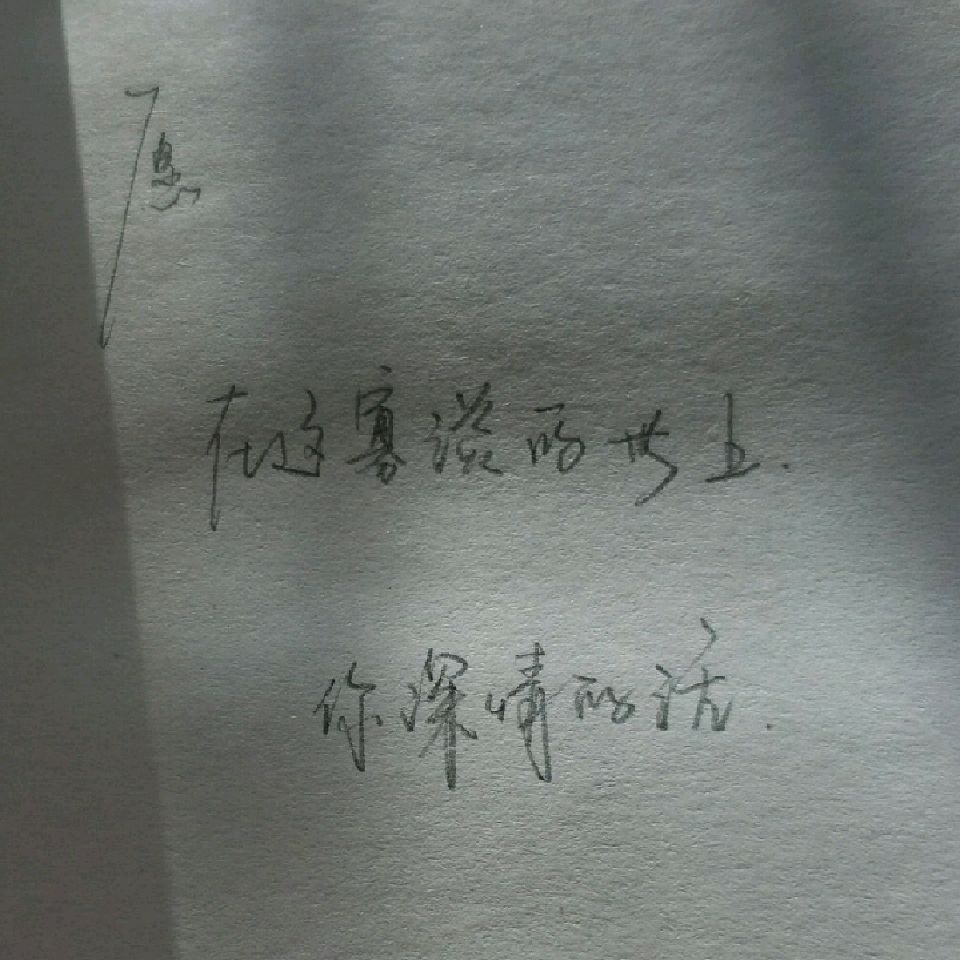 愿
在这寡淡的世上.
你深情的活.